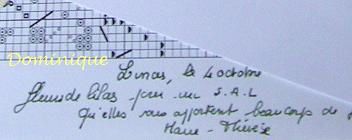 Dominique
Linas, le 4 octobre
fleurs de lilas pour un S.A.L
Qu'elles vous apportent beaucoup de
Marie-Thérèse